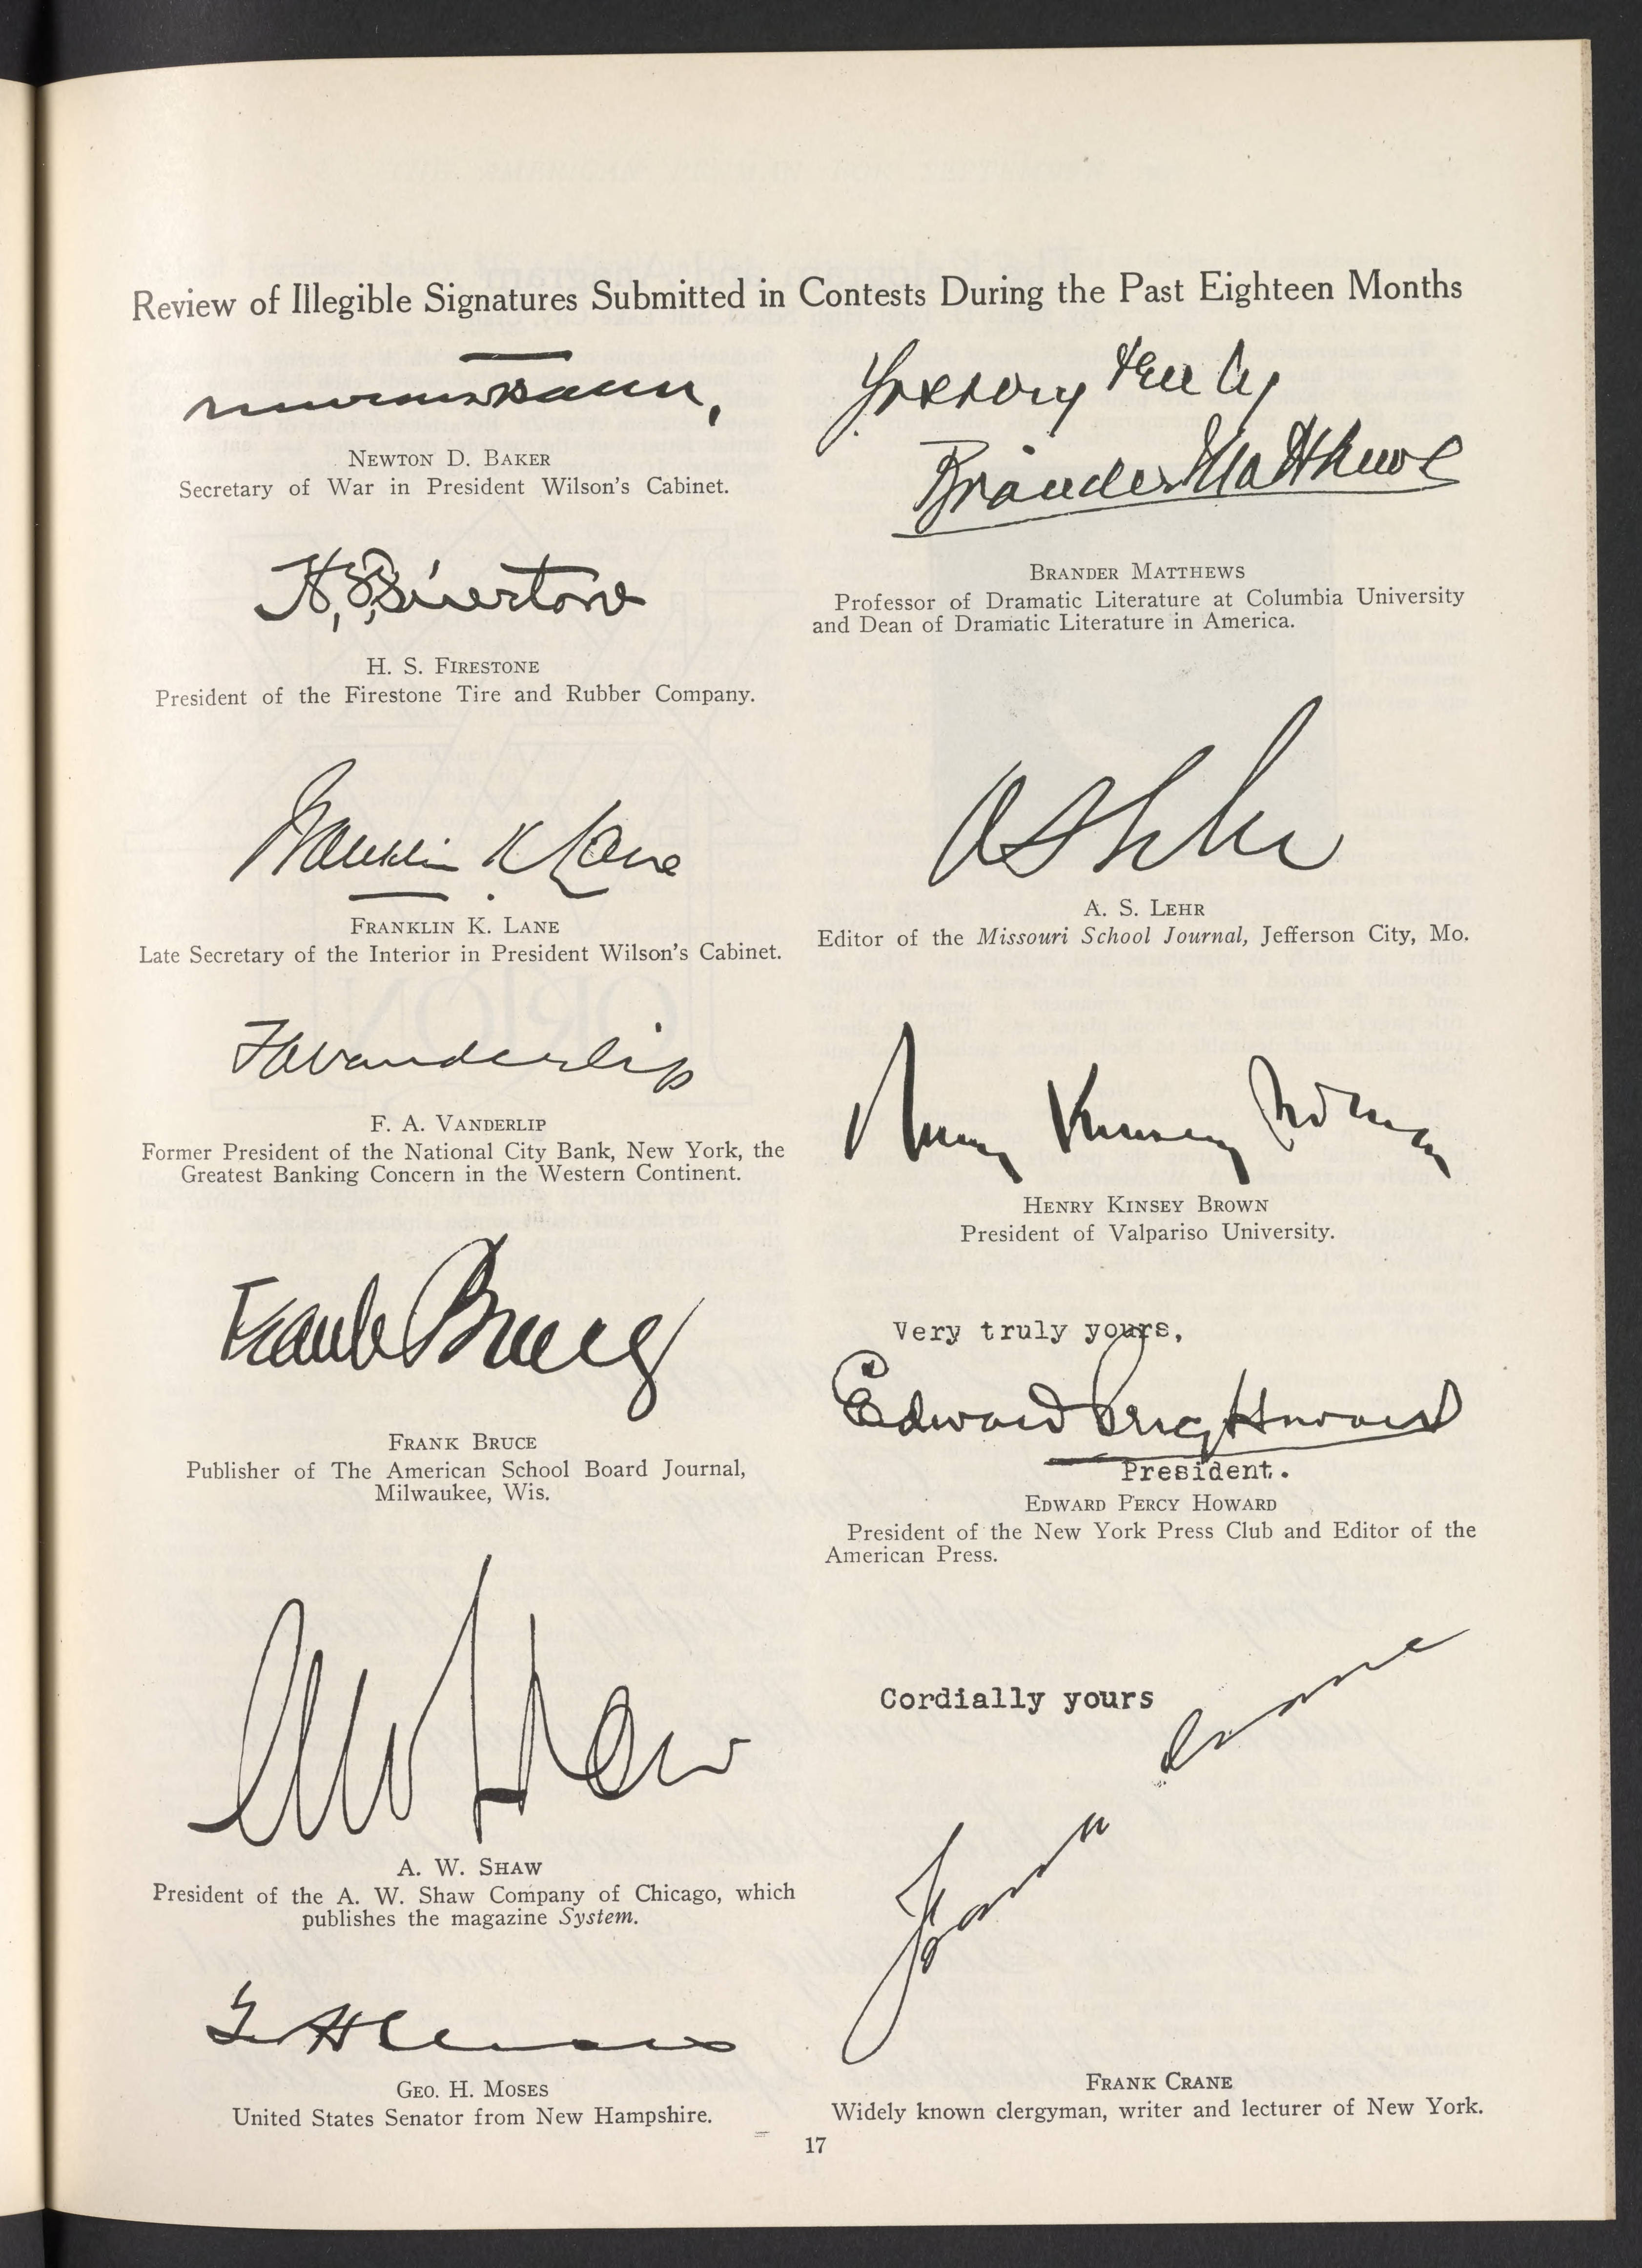 Review of Illegible Signatures Submitted in Contests During the Past Eighteen Months
NEWTON D. BAKER
Secretary of War in President Wilson's Cabinet.
H. S. Firestone
H. S. FIRESTONE
President of the Firestone Tire and Rubber Company.
Franklin K Lane
FRANKLIN K. LANE
Late Secretary of the Interior in President Wilson's Cabinet.
F A Vanderlip
F. A. VANDERLIP
Former President of the National City Bank, New York, the
Greatest Banking Concern in the Western Continent.
Frank Bruce
FRANK BRUCE
Publisher of The American School Board Journal,
Milwaukee, Wis.
A W Shaw
A. W. SHAW
President of the A. W. Shaw Company of Chicago, which
publishes the magazine System.
GEO. H. MOSES
United States Senator from New Hampshire.
Brander Matthews
BRANDER MATTHEWS
Professor of Dramatic Literature at Columbia University
and Dean of Dramatic Literature in America.
A S Lehr
A. S. LEHR
Editor of the Missouri School Journal, Jefferson City, Mo.
Henry Kinsey Brown
HENRY KINSEY BROWN
President of Valpariso University.
Very truly yours,
Edward Percy Howard
President.
EDWARD PERCY HOWARD
President of the New York Press Club and Editor of the
American Press.
Cordially yours
Frank Crane
FRANK CRANE
Widely known clergyman, writer and lecturer of New York.
17